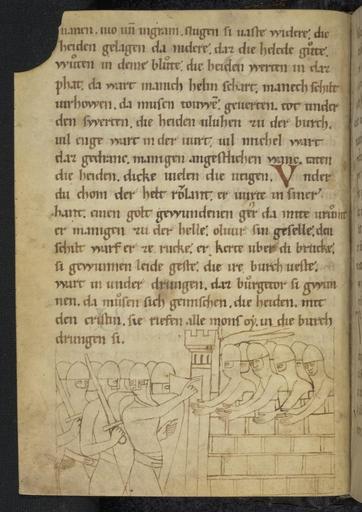 manen. ivo uñ ingram. slůgen si uaste widere. die
heiden gelagen da nidere. daz die helede gůte.
wůten in deme blůte. die heiden werten in daz
phat. da wart manich helm schart. manech schilt
uirhowen. da můsen touwẽ. geuerten. tot under
den swerten. die heiden uluhen zu der burch.
uil enge wart in der uurt. uil michel wart
daz gedranc. manigen angestlichen wanc. taten
die heiden. dicke uielen die ueigen. Vnder
du chom der helt rolant. er uůrte in siner
hant. einen golt gewundenen ger da mite urumt
er manigen zu der helle. oliuir sin geselle. den
schilt warf er ze rucke. er kerte uber di brucke.
si gewunnen leide geste. die ire burch ueste.
wart in under drungen. daz burgetor si gwun
nen. da můsen sich gemischen. die heiden. mit
den cristin. sie riefen alle mons oy. in die burch
drungen si.